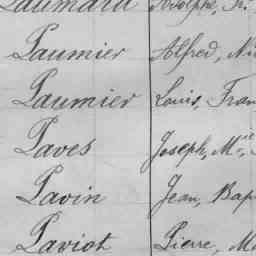 Paumard Adolphe,
Paumier Alfred,
Paumier Louis, Fran
Paves Joseph, Mie
Pavin Jean, Bap
Paviot Pierre, M